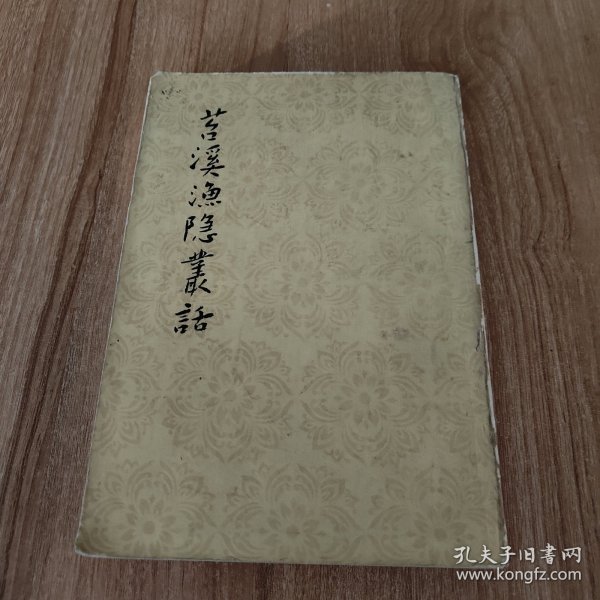 苕溪漁隐叢話
孔夫子旧書网
www.kongfz.com